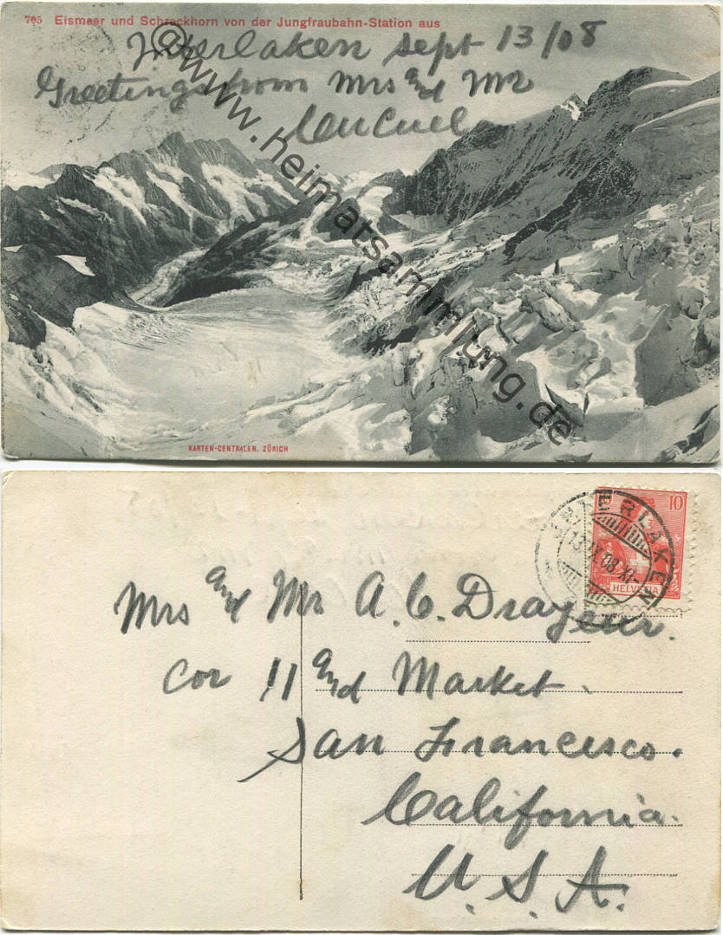 705 Eismeer und Schreckhorn von der Jungfraubahn-Station aus
Interlaken Sept 13/08
Greetings from Mrs and Mr
www.heimatsammlung.de
KARTEN-CENTRALEN, ZÜRICH
10
INTERLAKEN
13.IX.08.XI-
HELVETIA
Mrs and Mr A. C. Drayeur.
Cor 11 and Market.
San Francesco.
California.
U. S. A.